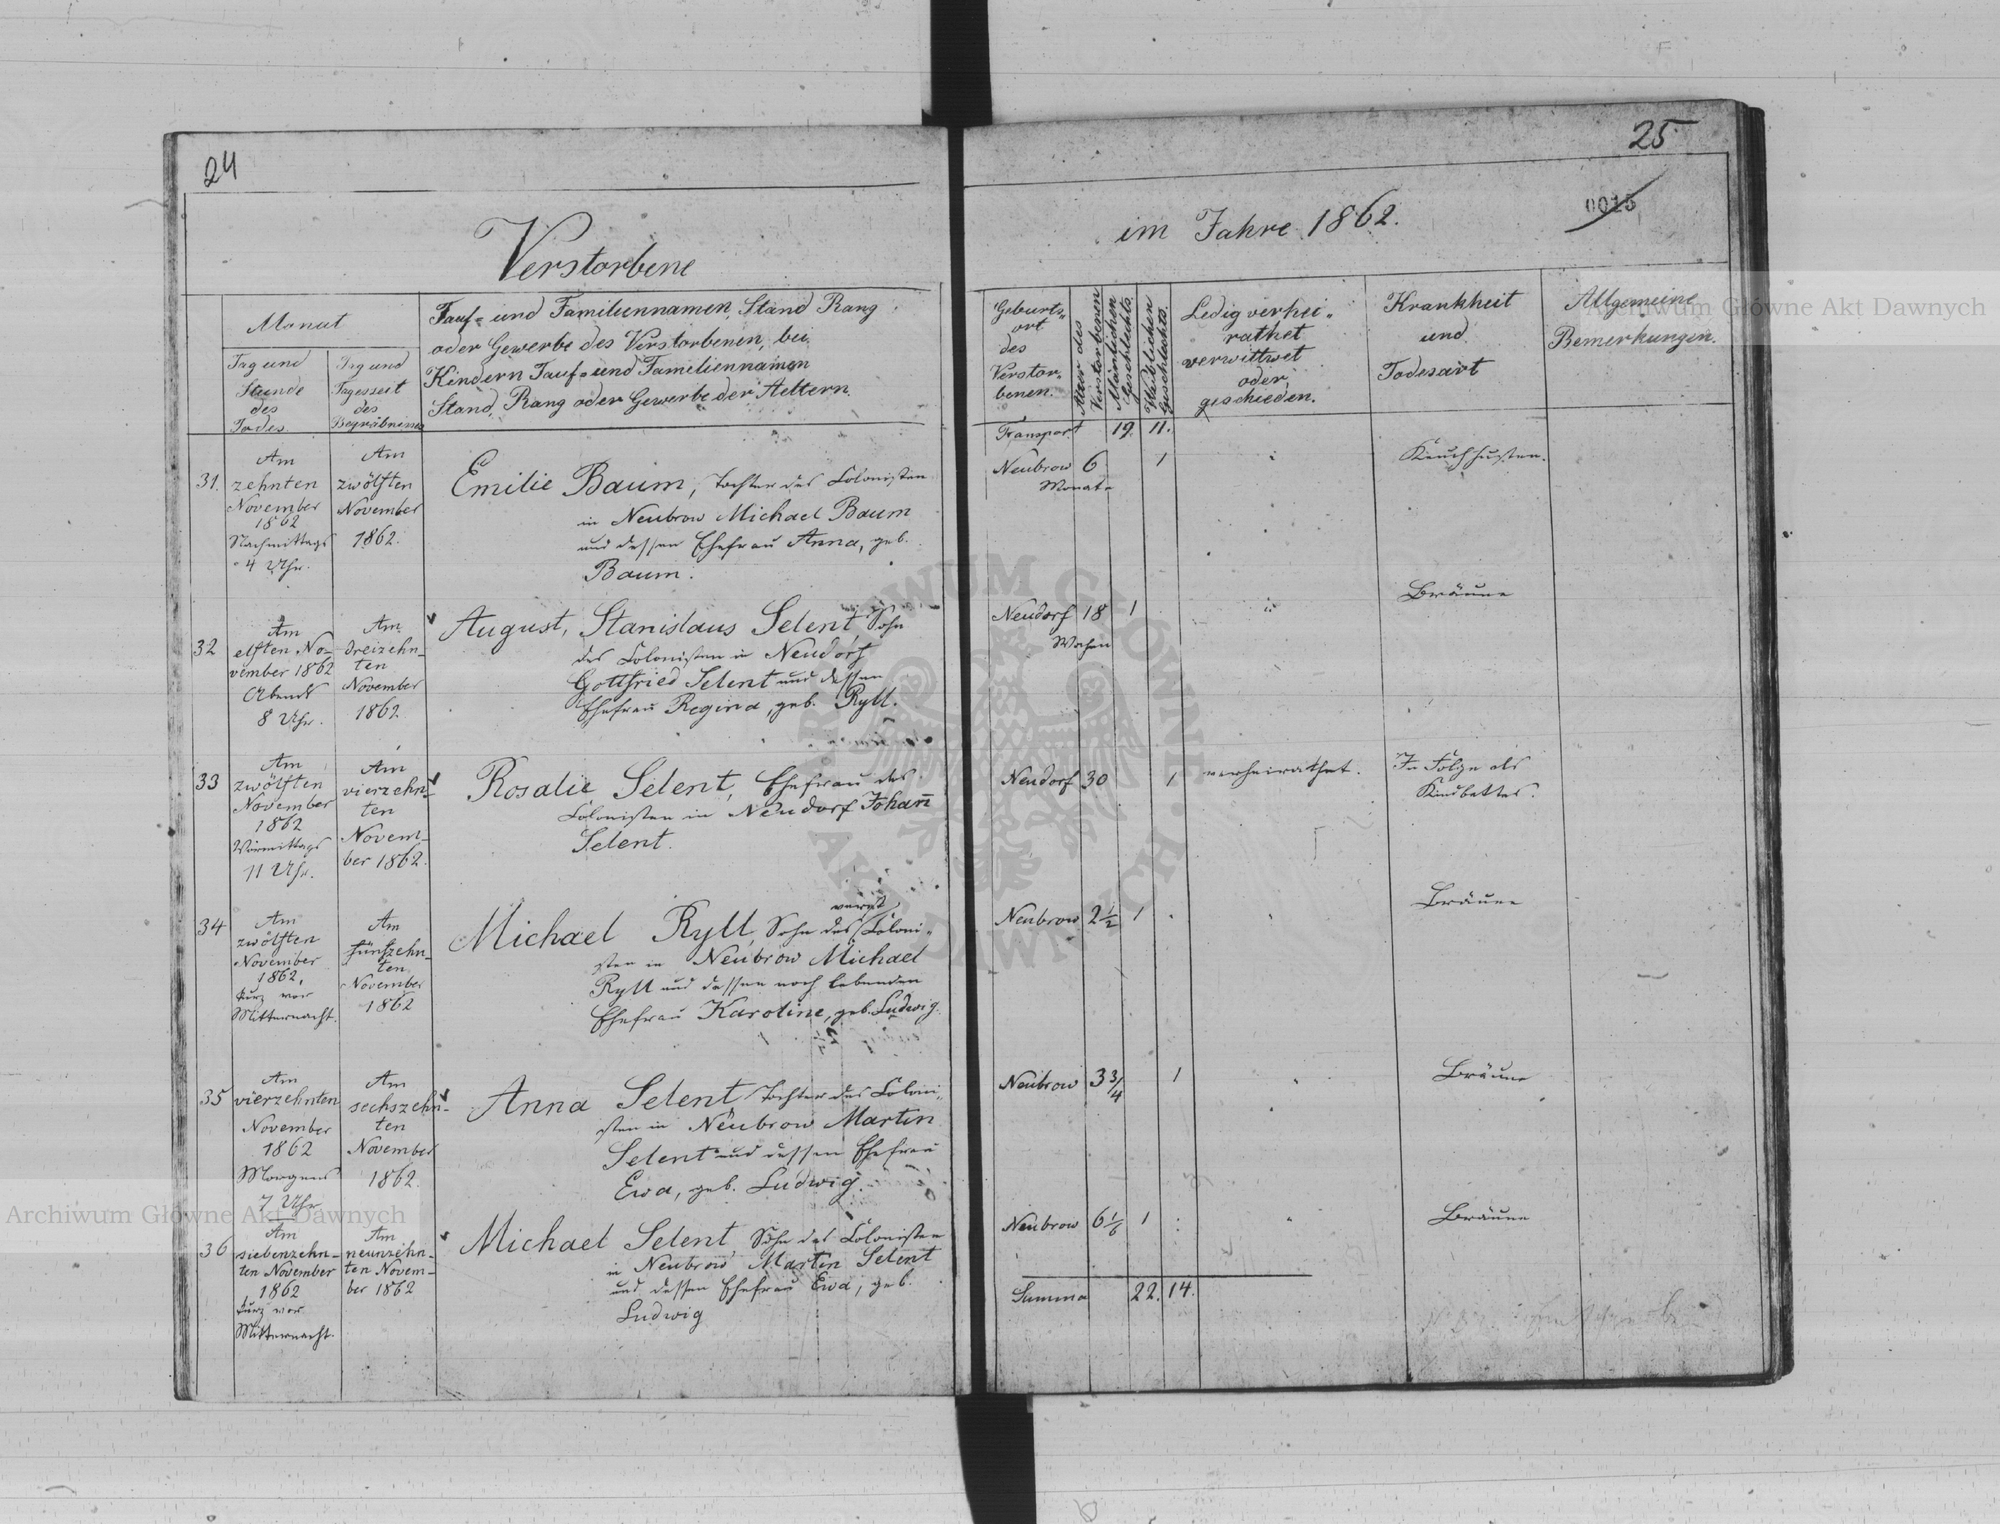 24
Verstorbene
Monat
Tag und
Stunde
des
Todes.
Tag und
Tageszeit
des
Begräbnisses
Tauf- und Familiennamen, Stand Rang
oder Gewerbe des Verstorbenen, bei
Kindern Tauf- und Familiennamen
Stand, Rang oder Gewerbe der Aeltern.
31.
Am
zehnten
November
1862
Nachmittags
4 Uhr.
Am
zwölften
November
1862.
Emilie Baum, Tochter des Colonisten
in Neubrow Michael Baum
und dessen Ehefrau Anna, geb.
Baum.
32
Am
elften No-
vember 1862
Abends
8 Uhr.
Am
dreizehn-
ten
November
1862
August, Stanislaus Selent, Sohn
des Colonisten in Neudorf
Gottfried Selent und dessen
Ehefrau Regina, geb. Ryll.
33
Am
zwölften
November
1862
Vormittags
11 Uhr.
Am
vierzehn-
ten
Novem-
ber 1862.
Rosalie Selent, Ehefrau des
Colonisten in Neudorf Johan̄
Selent.
34
Am
zwölften
November
1862,
kurz vor
Mitternacht.
Am
fünfzehn-
ten
November
1862
Michael Ryll Sohn des Coloni-
sten in Neubrow Michael
Ryll und dessen noch lebenden
Ehefrau Karoline, geb. Ludwig.
35
Am
vierzehnten
November
1862
Morgens
7 Uhr
Am
sechszehn-
ten
November
1862.
Anna Selent Tochter des Coloni-
sten in Neubrow Martin
Selent und dessen Ehefrau
Ewa, geb. Ludwig.
36
Am
siebenzehn-
ten November
1862
kurz vor
Mitternacht.
Am
neunzehn-
ten Novem-
ber 1862
Michael Selent, Sohn des Colonisten
in Neubrow Martin Selent
und dessen Ehefrau Ewa, geb.
Ludwig
25
0015
im Jahre 1862.
Geburts-
ort
des
Verstor-
benen.
Alter des
Verstorbenen
Mänlichen
Geschlechts.
Weiblichen
Geschlechts.
Ledig verhei-
rathet
verwittwet
oder
geschieden.
Krankheit
und
Todesart
Allgemeine
Bemerkungen.
Transport 19. 11.
Neubrow 6 1 Keuchhusten.
Monate
Neudorf 18 1 Bräune
Wochen
Neudorf 30 1 verheirathet. In Folge des
Kindbettes.
Neubrow 2 1/2 1 Bräune
Neubrow 3 3/4 1 Bräune
Neubrow 6 1/6 1 Bräune
Summa 22. 14.
Archiwum Główne Akt Dawnych
Archiwum Główne Akt Dawnych
ARCHIWUM GŁÓWNE AKT DAWNYCH